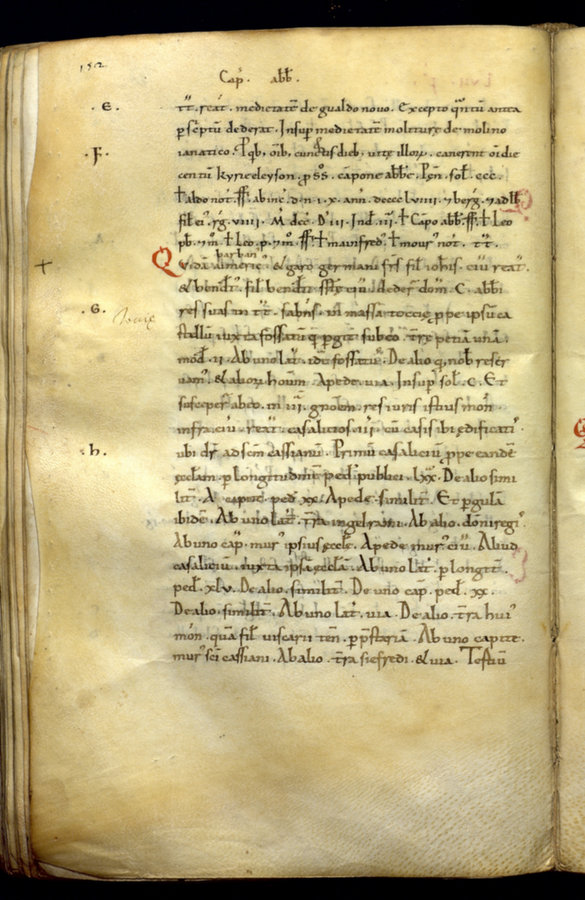 152
Cap̄. abb̄.
.E. tt̄. reat̄. medietatē de gualdo novo. Excepto qn̄tū antea
p scptū dederat. Insup medietatē molture de molino
.F. ianatico. Pqb, oīb, cunctisdieb, uite illoȝ. canerent oī die
centū kyrieeleyson. p ss̄. capone abbe. Pen. sol. ccc.
t aldo not̄. ff̄. ab inc̄. d.n.i.x. ann. dcccc l viiii.
fil ei. rg. viiii. M dec̄. D iii. Ind. iii. t Capo abb. ff̄. t Leo
pb. t Leo. p. t mainfred t mour not̄. tt̄.
barban
Q vidā almeric, & garo germani frs filˉ ioh̄is. ciū reat.
& bened, fil bened ciū. dedeř dom̄. C. abbi
.G. res suas in tt̄. sabn̄s. in massa toccie, ppe ipsū ca
stallū iuxta fossatū q pgit subco. tre petiā unā.
mod. ii. Ab uno lat. idē fossatū. De alio q, nob reser
uam, & alioȝ hoūm. Apede. uia. Insup sol. C. Et
susceper abeo. in iii. gn̄oem. res iuris istius mon̄.
infra ciū. reat. casalitios. iii. cū casis ibi edificati,
.h. ubi dr̄ ad scm̄ cassianū. Primū casaliciū ppe eandē
ęccl̄am. p longitudinē ped publici. lxx. De alio simi
lit̄. A capite. ped. xx. Apede. similit̄. Et pgulā
ibidē. Ab uno lat̄. tra ingelrami. Ab alio. dōni regi,
Ab uno cap. mur, ipsius ęccle. Apede mur, ciū. Aliud
casaliciū. iuxta ipsā ęccl̄a. Ab uno lat. p longit̄.
ped. xlv. De alio. similit̄. De uno cap. ped. xx.
De alio. similit̄. Ab uno lat. uia. De alio. tra hui,
mon̄. quā fil viscarii ten. p pstariā. Ab uno capite.
mur, sc̄i cassiani. Ab alio. tra siefredi. & uia. Testiū